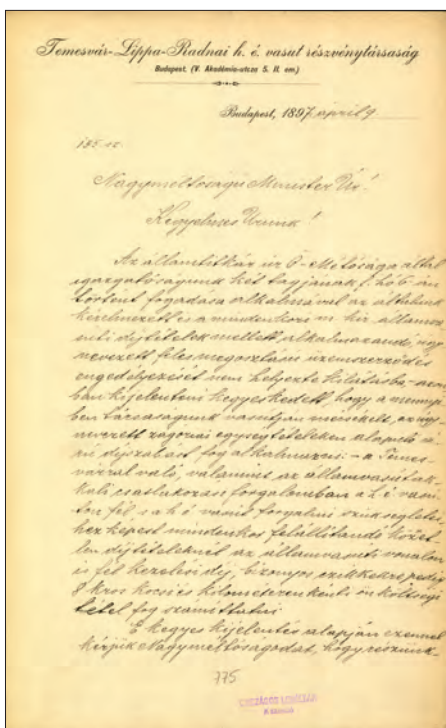 Temesvár-Lippa-Radnai h. é. vasut részvénytársaság
Budapest. (V. Akadémia-utcza 5. II. em.)
Budapest, 1897 április 9
185. sz.
Nagyméltóságú Minister Úr!
Kegyelmes Urunk!
Az államtitkár úr Ő-Méltósága által
igazgatóságunk két tagjának f. hó 6-án
történt fogadása alkalmával az általunk
kérelmezett és a mindenkori m. kir. államva-
suti díjtételek mellett alkalmazandó, úgy
nevezett feles megosztási üzemszerződés
engedélyezését nem helyezte kilátásba, - azon-
ban kijelenteni kegyeskedett, hogy a mennyi-
ben társaságunk vasutján mérsékelt, az úgy-
nevezett zagoriai egységtételeken alapuló
díjszabást fog alkalmazni: - a Temes-
várral való, valamint az államvasutak-
kali csatlakozási forgalomban a h. é. vasu-
ton fél s a h. é. vasút forgalmi szükségletei-
hez képest mindenkor felállítandó közvet-
len díjtételeknél az államvasuti vonalon
is fél kezelési díj, bizonyos czikkekre pedig
8 kros kocsi és kilométerenkénti önköltségi
tétel fog számíttatni.
E kegyes kijelentés alapján ezennel
kérjük Nagyméltóságodat, hogy részünk-
775
ORSZÁGOS LEVÉLTÁR
K szekció